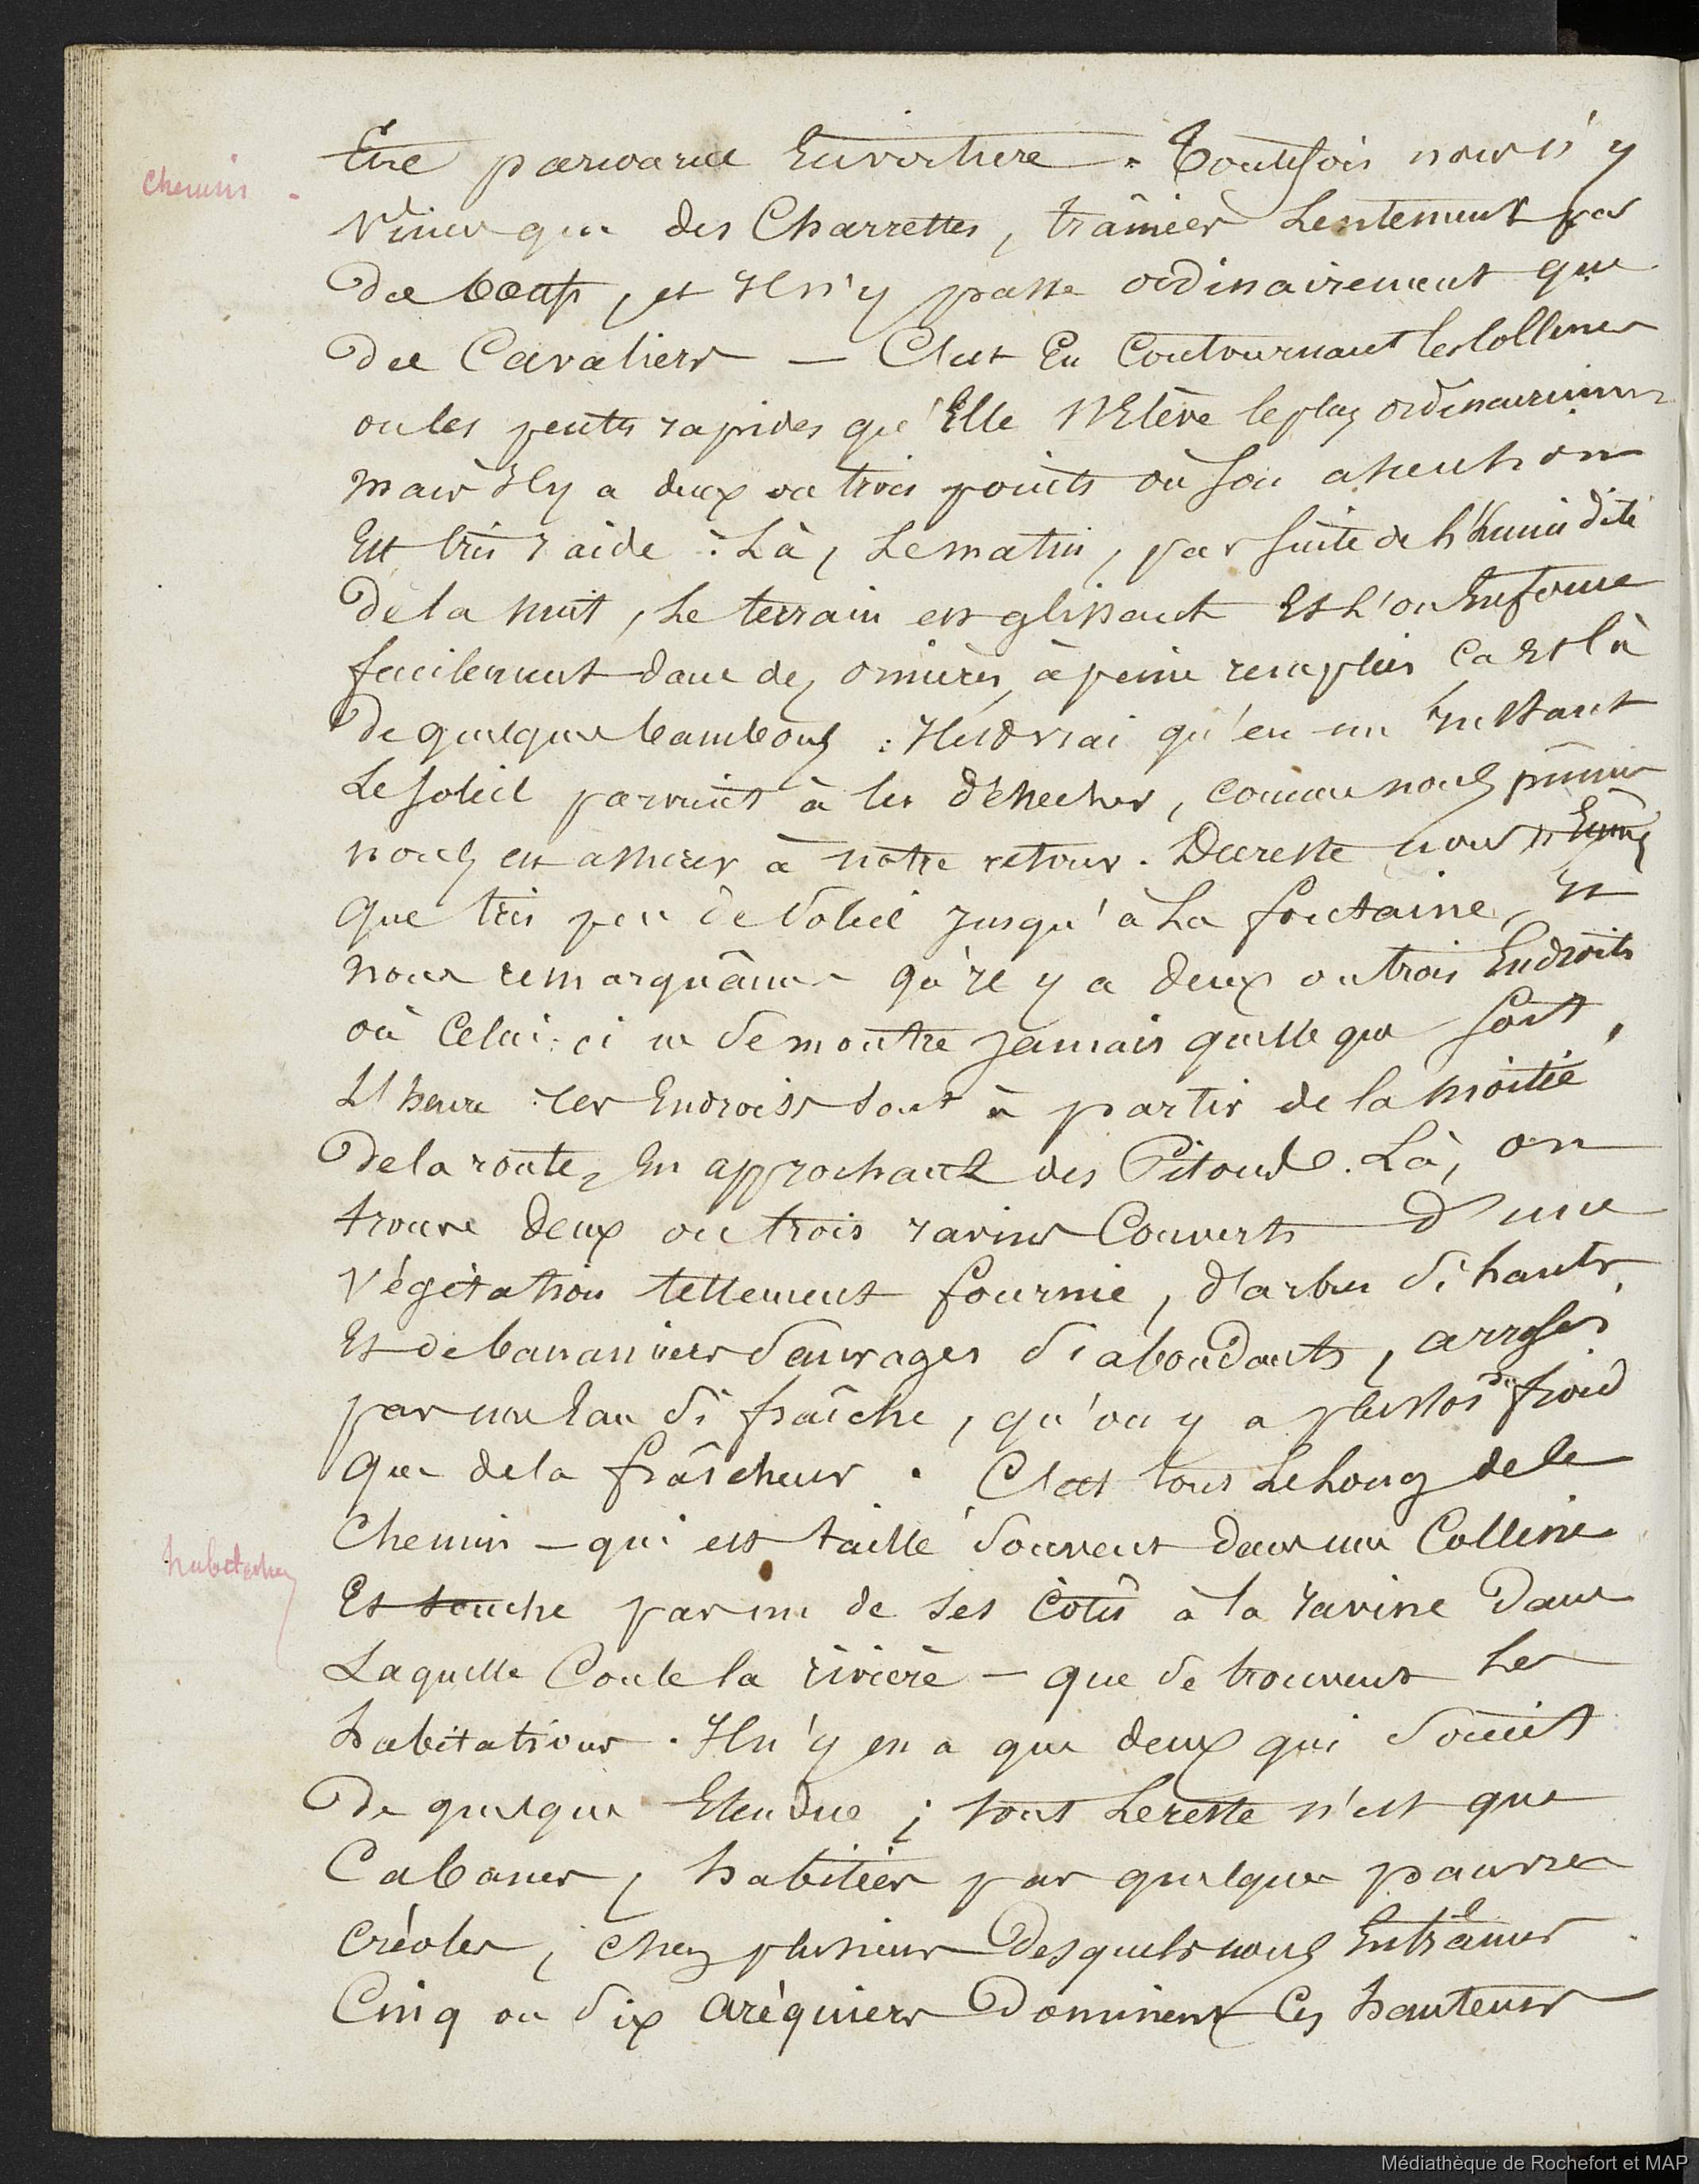 chemin -
Etre parcourue En voiture. Toutefois nous n'y
vîmes que des Charrettes, trâinées Lentement par
des boeufs, et Il n'y passe ordinairement que
des Cavaliers — C'est En Contournant les Collines
ou les pentes rapides qu'Elle s'Elève le plus ordinairement
mais Il y a deux ou trois points où son ascension
Est très raide : Là, Le matin, par suite de l'humidité
de la nuit, Le terrain est glissant Et L'on Enfonce
facilement dans des ornières, à peine remplies ça Et là
de quelques bambous : Il est vrai qu'en un Instant
Le soleil parvient à les dessecher, comme nous pûmes
nous en assurer à notre retour. Du reste nous n'Eumes
que très peu de soleil Jusqu'à La fontaine, Et
nous remarquâmes qu'Il y a deux ou trois Endroits
où Celui-ci ne se montre Jamais quelle que soit,
L'heure : ces Endroits sont à partir de la moitié
de la route, En approchant des Pitouds. Là, on
trouve deux ou trois ravins Couverts d'une
Végétation tellement fournie, d'arbres si hauts,
Et de bananiers sauvages si abondants, arrosés
par une Eau si fraîche, qu'on y a plustos du froid
que de la fraîcheur. C'est tout Le Long de le
Chemin — qui est taillé souvent dans une Colline
habitations
Et touche par un de ses côtés à la ravine dans
Laquelle Coule la rivière — que se trouvent Les
habitations. Il n'y en a que deux qui soient
De quelque Etendue ; tout Le reste n'est que
Cabanes, habitées par quelques pauvres
Créoles, chez plusieurs desquels nous Entrâmes.
Cinq ou dix aréquiers Dominent Ces hauteurs
Médiathèque de Rochefort et MAP